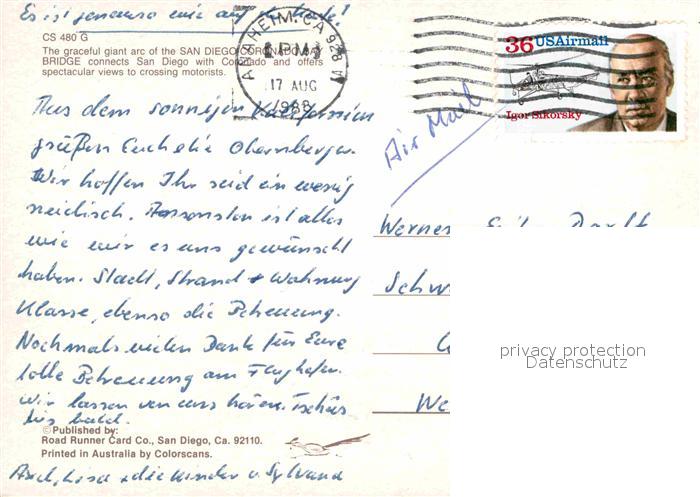 Es ist genauso wie auf der Karte!
CS 480 G
The graceful giant arc of the SAN DIEGO CORONADO BAY
BRIDGE connects San Diego with Coronado and offers
spectacular views to crossing motorists.
ANAHEIM, CA 928
PM
17 AUG
1988
36 USAirmail
Igor Sikorsky
Air Mail
Aus dem sonnigen Kalifornien
grüßen Euch die Obernberger.
Wir hoffen Ihr seid ein wenig
neidisch. Ansonsten ist alles
wie wir es uns gewünscht
haben. Stadt, Strand + Wohnung
Klasse, ebenso die Betreuung.
Nochmals vielen Dank für Eure
tolle Betreuung am Flughafen.
Wir lassen von uns hören. Tschüs
bis bald.
Werner
Schw
We
privacy protection
Datenschutz
©Published by:
Road Runner Card Co., San Diego, Ca. 92110.
Printed in Australia by Colorscans.
die Kinder